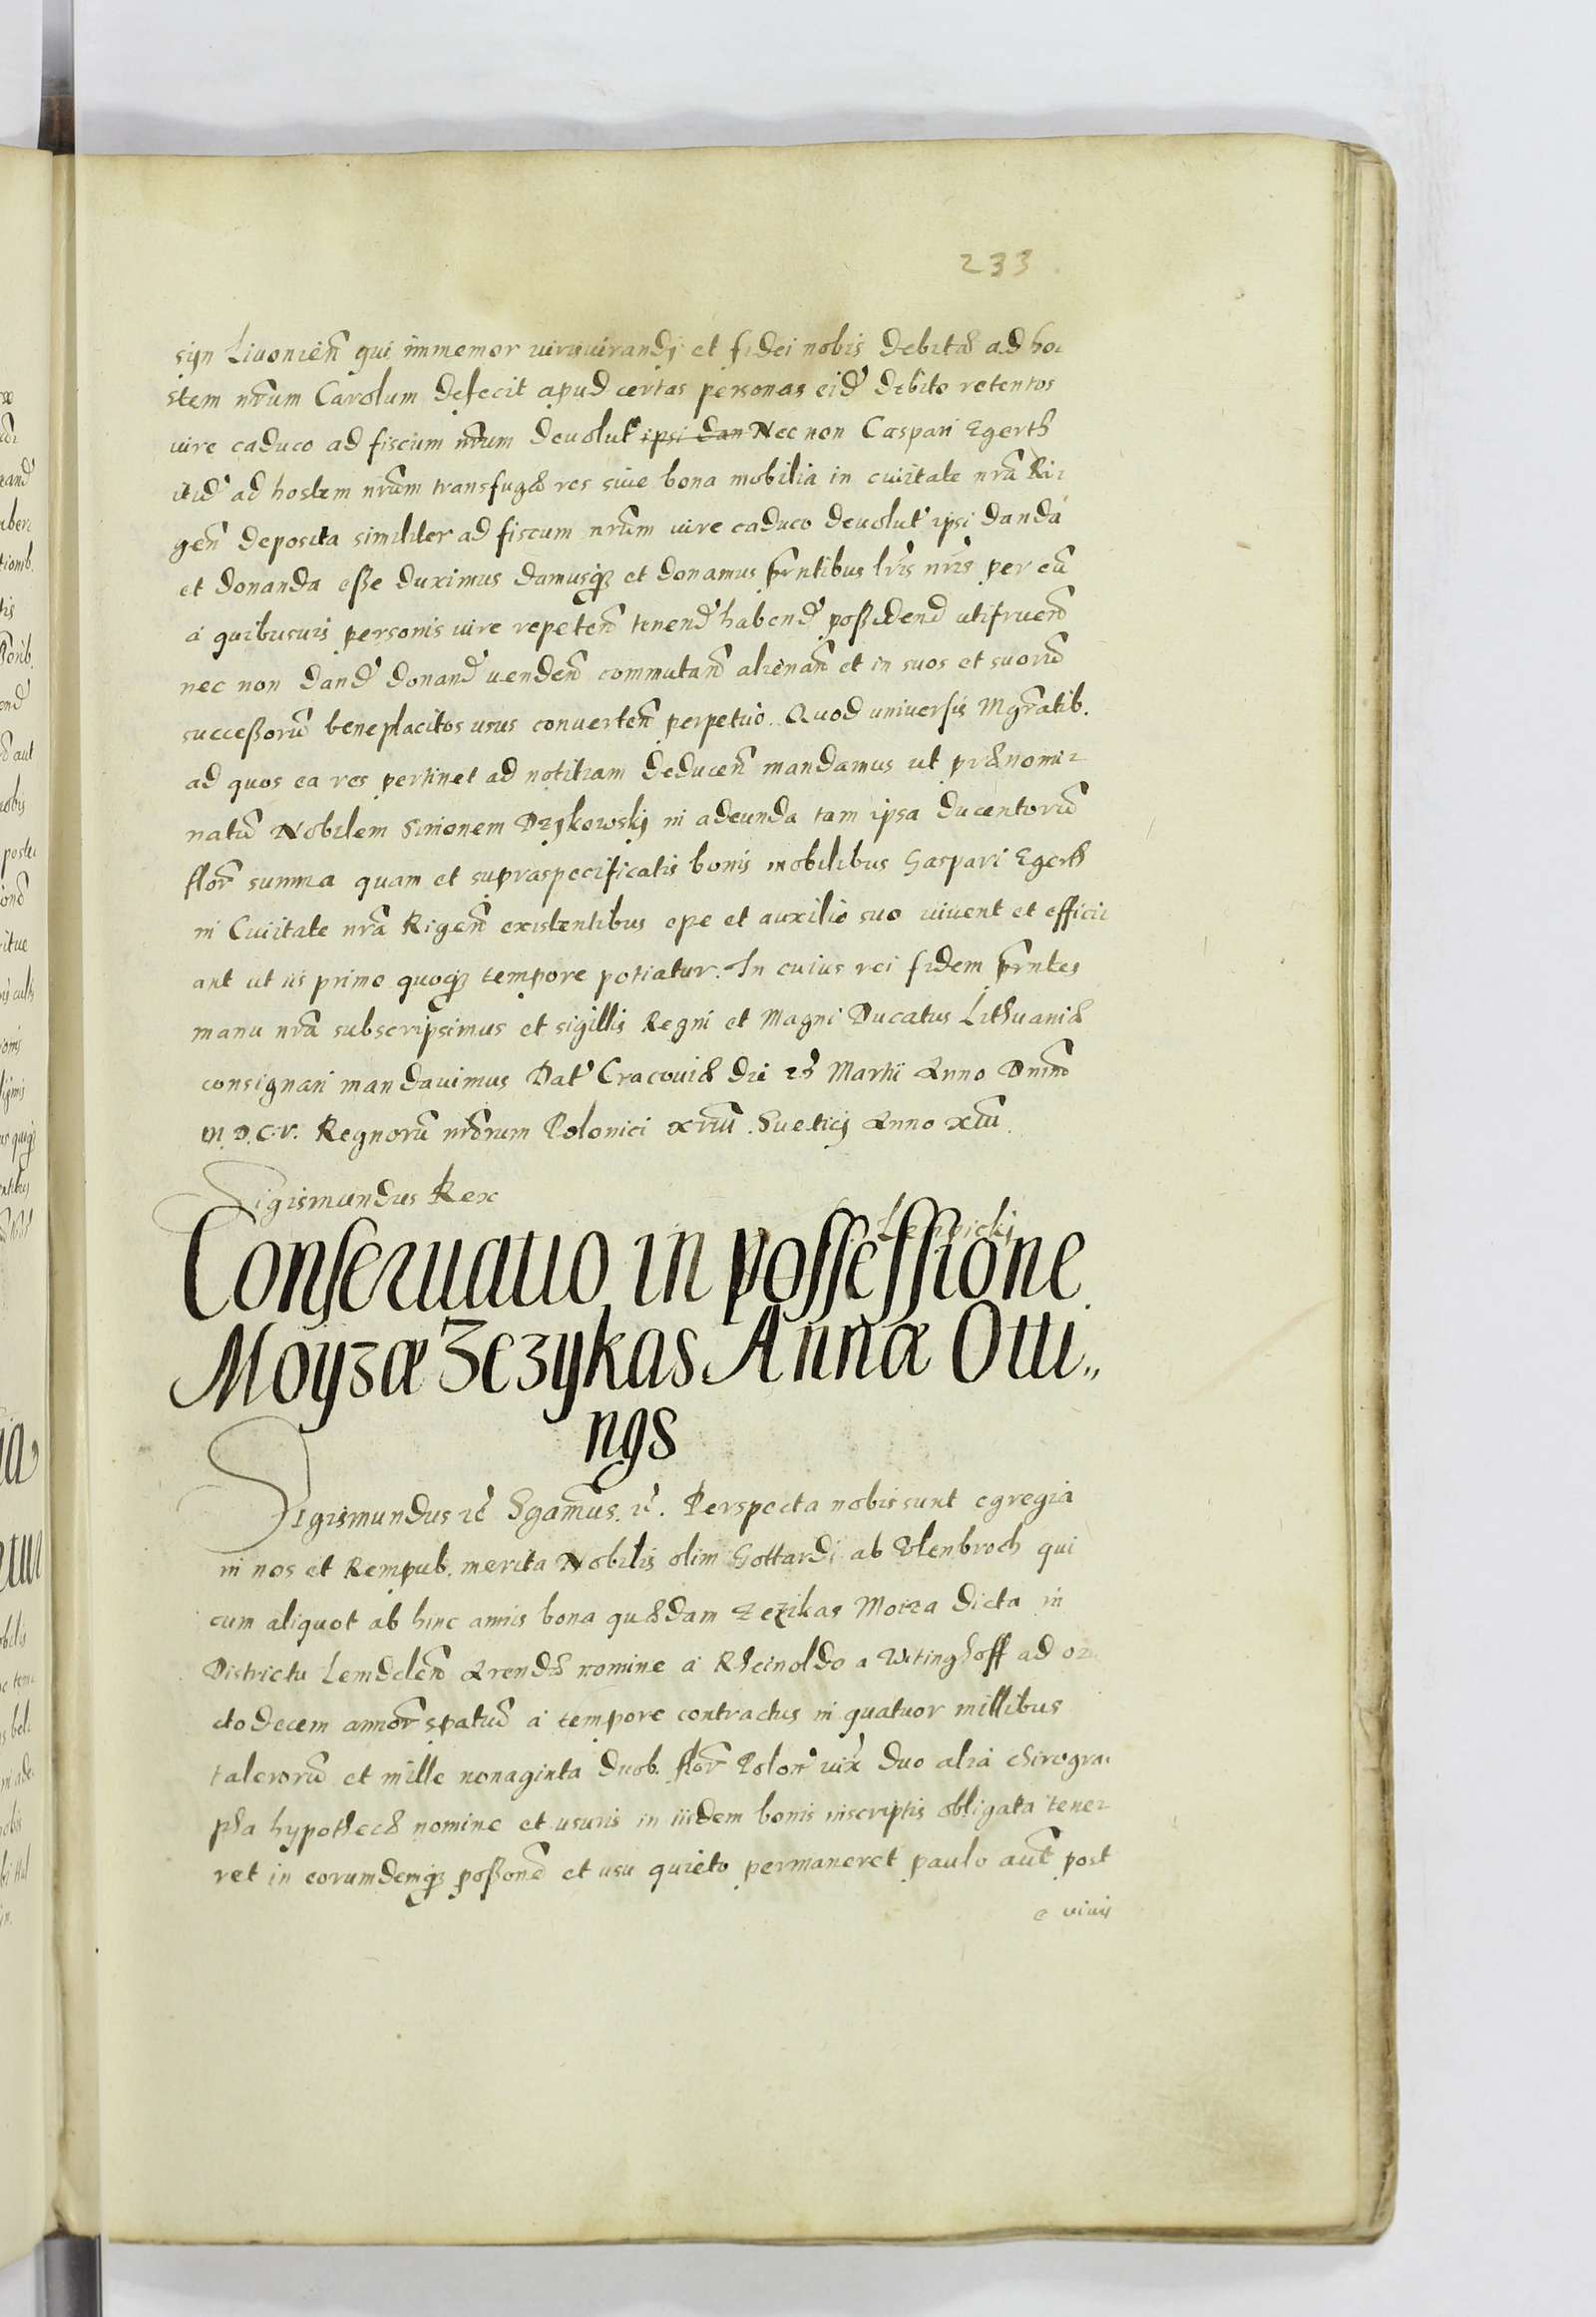 233
sijn Livonien̄ qui immemor iurisiurandj et fidei nobis debitæ ad ho-
stem nr̄um Carolum defecit apud certas personas eid' debito retentos
iure caduco ad fiscum nr̄um devolut' ipsi dan Nec non Caspari Egerth
itid' ad hostem nr̄um transfugæ res sive bona mobilia in civitate nrā Ri-
gen̄ deposita similiter ad fiscum nr̄um iure caduco devolut' ipsi danda
et donanda esse duximus damusq₃ et donamus pr̄ntibus lr̄is nr̄is per eū
a quibusvis personis iure repeten̄ tenend' habend' possidend utifruen̄
nec non dand' donand' venden̄ commutan̄ alienan̄ et in suos et suorū
successorū beneplacitos usus converten̄ perpetuo. Quod universis Mgr̄atib.
ad quos ea res pertinet ad notitiam deducen̄ mandamus ut prænomi-
natū Nobilem Simonem Dzijkowskj in adeunda tam ipsa ducentorū
flor̄ summa quam et supraspecificatis bonis mobilibus Gaspari Egerth
in Civitate nrā Rigen̄ existentibus ope et auxilio suo iuvent et effici-
ant ut iis primo quoq₃ tempore potiatur. In cuius rei fidem pr̄ntes
manu nrā subscripsimus et sigillis Regni et Magni Ducatus Lithuaniæ
consignari mandavimus Dat' Cracoviæ die Martii Anno Dnī
M.D.C.V. Regnorū nr̄orum Polonici XVIII Sueticj Anno XIII.
Sigismundus Rex
Conseruatio in possessione
Moyzæ Zezykas Annæ Otti-
ngs
Sigismundus &c̄ Sgamus. &c̄. Perspecta nobis sunt egregia
in nos et Rempub. merita Nobilis olim Gottardi ab Elenbroch qui
cum aliquot ab hinc annis bona quædam Zezikas Moiza dicta in
Districtu Lemdelen̄ Arendæ nomine a Rheinoldo a Vitinghoff ad o-
ctodecem annor̄ spatiū a tempore contractus in quatuor millibus
talerorū et mille nonaginta duob. flor̄ Polon' iux̄ duo alia chirogra-
pha hypothecæ nomine et usuris in iisdem bonis inscriptis obligata tene-
ret in eorumdemq₃ possone et usu quieto permaneret paulo aut̄ post
e vivis